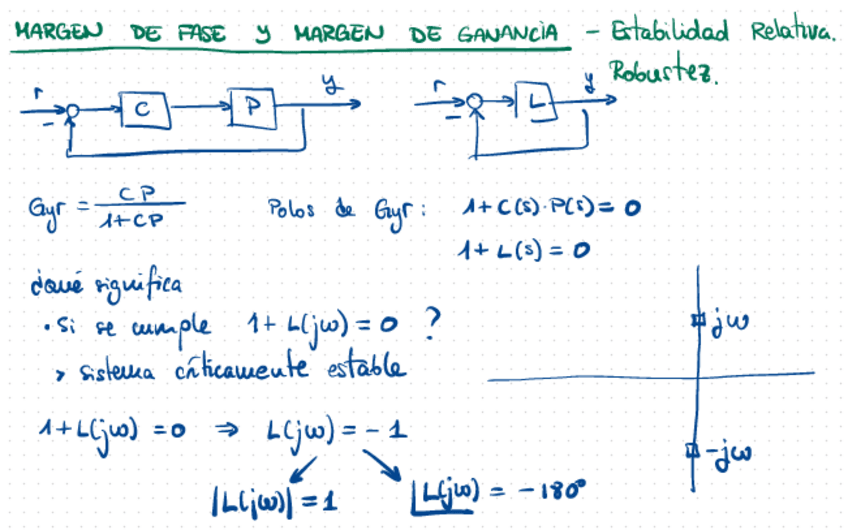 MARGEN DE FASE Y MARGEN DE GANANCIA - Estabilidad Relativa.
Robustez.
r - C P y
r - L y
Gyr = CP / 1+CP
Polos de Gyr: 1+C(s)·P(s)=0
1+L(s)=0
¿qué significa
• Si se cumple 1+L(jω)=0 ?
> sistema críticamente estable
jω
-jω
1+L(jω)=0 ⇒ L(jω)=-1
|L(jω)|=1
∠L(jω) = -180°